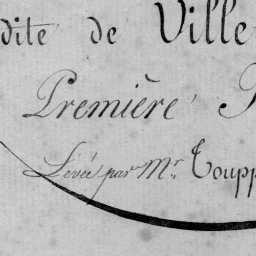 dite de Ville
Première P
Levée par Mr. Toupp